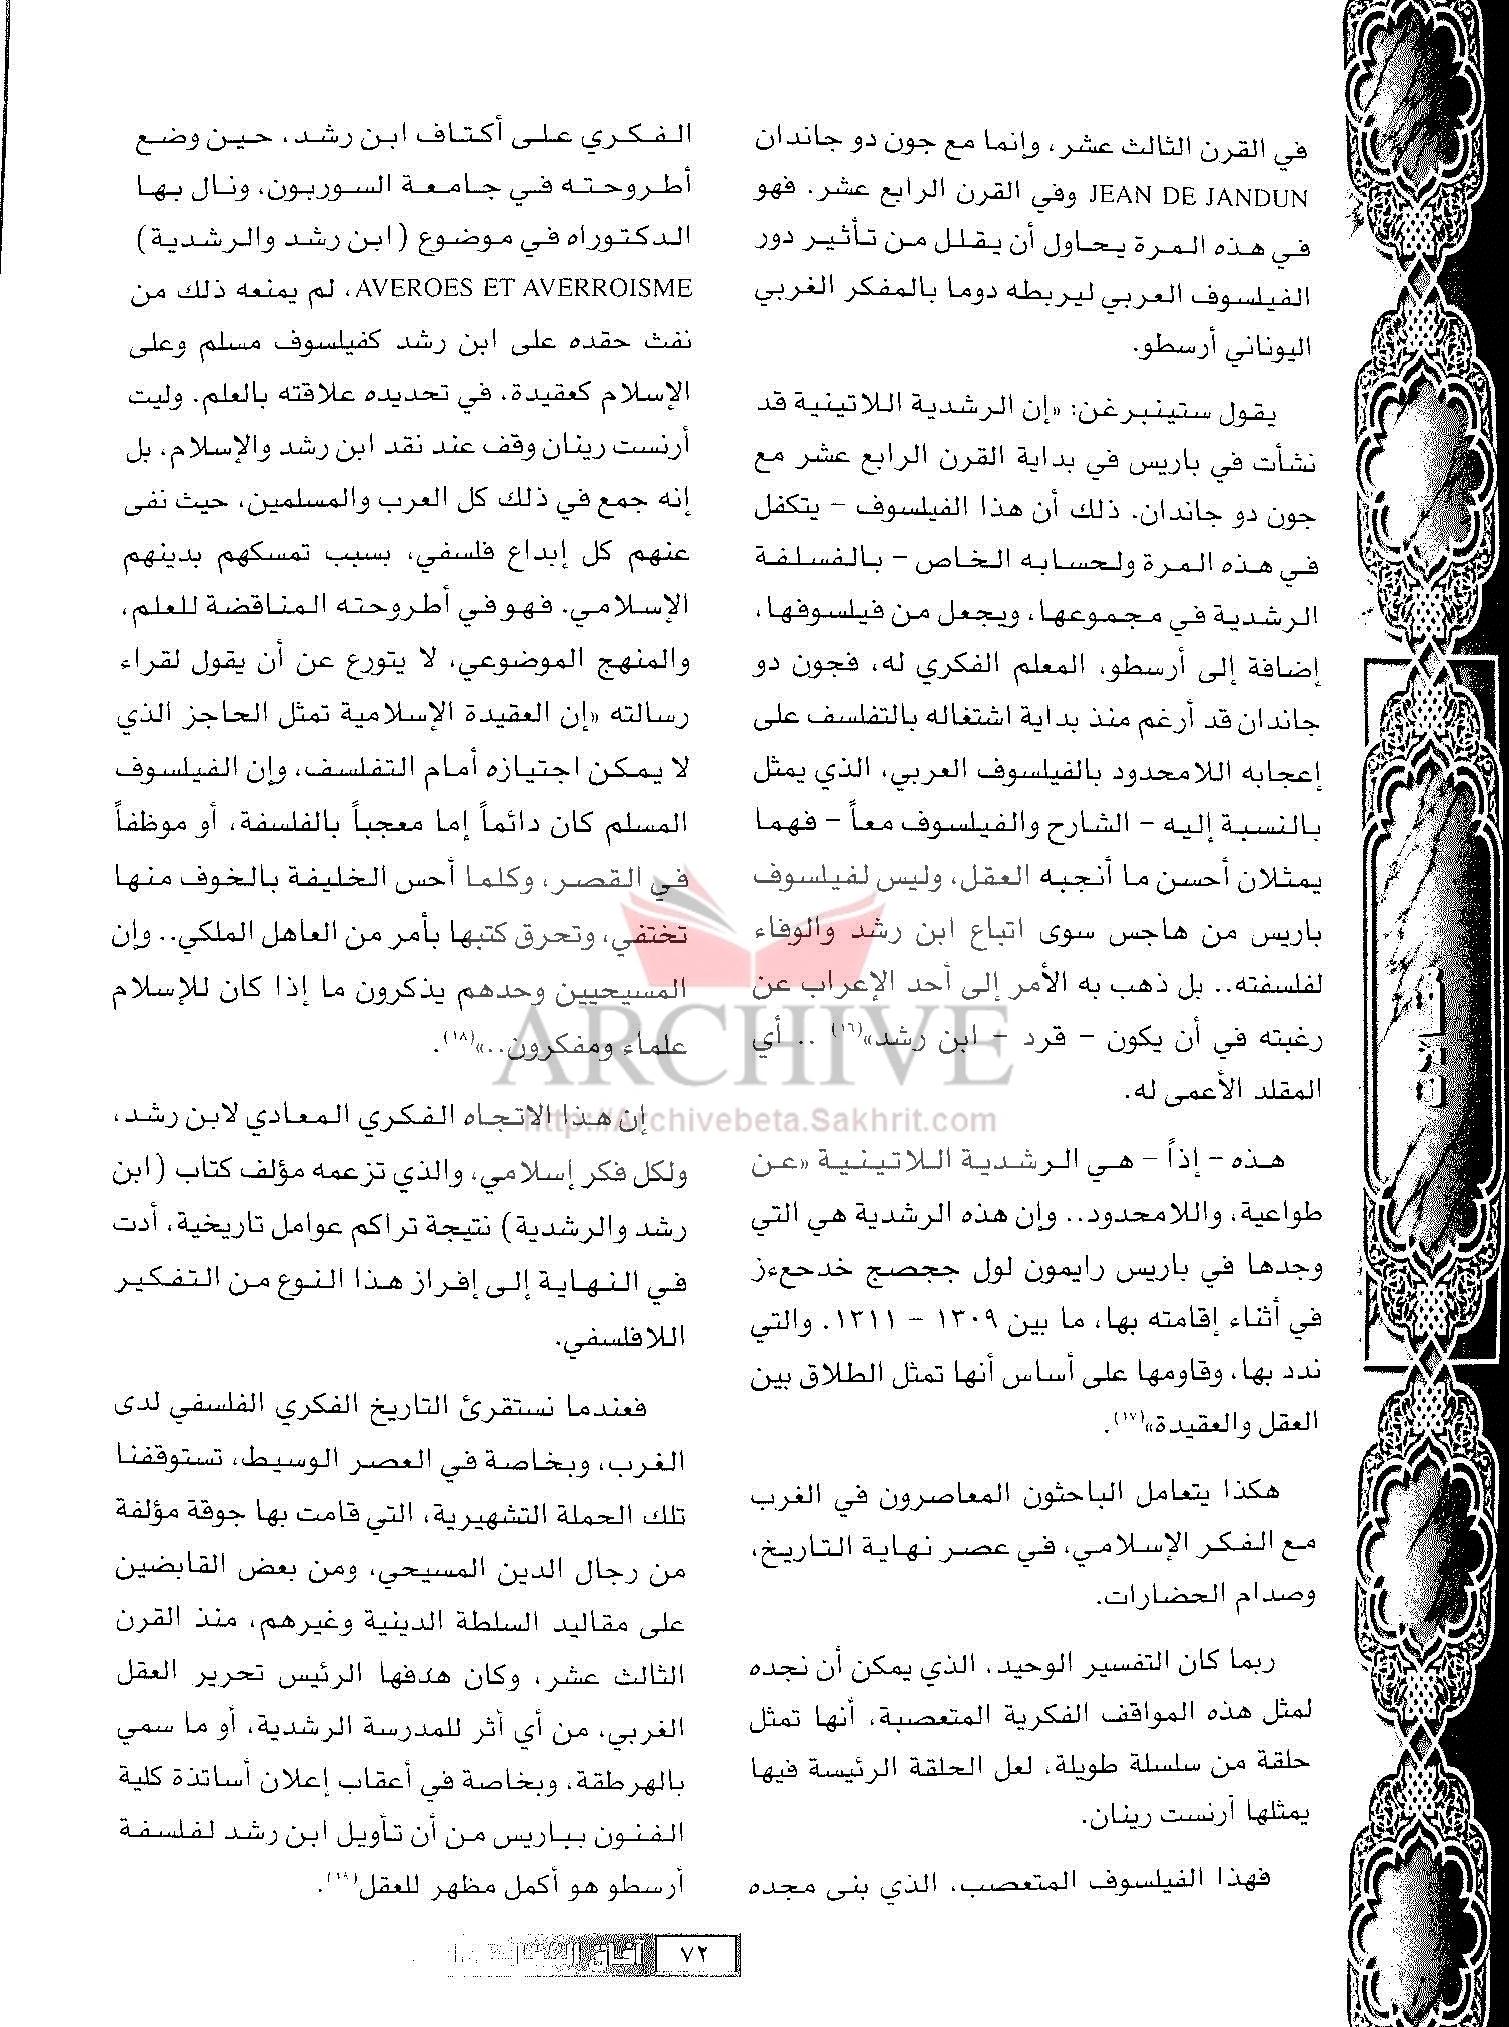 في القرن الثالث عشر، وإنما مع جون دو جاندان
JEAN DE JANDUN وفي القرن الرابع عشر. فهو
في هذه المرة يحاول أن يقلل من تأثير دور
الفيلسوف العربي ليربطه دوما بالمفكر الغربي
اليوناني أرسطو.
يقول ستينبرغن: «إن الرشدية اللاتينية قد
نشأت في باريس في بداية القرن الرابع عشر مع
جون دو جاندان. ذلك أن هذا الفيلسوف - يتكفل
في هذه المرة ولحسابه الخاص - بالفسلفة
الرشدية في مجموعها، ويجعل من فيلسوفها،
إضافة إلى أرسطو، المعلم الفكري له، فجون دو
جاندان قد أرغم منذ بداية اشتغاله بالتفلسف على
إعجابه اللامحدود بالفيلسوف العربي، الذي يمثل
بالنسبة إليه - الشارح والفيلسوف معاً - فهما
يمثلان أحسن ما أنجبه العقل، وليس لفيلسوف
باريس من هاجس سوى اتباع ابن رشد والوفاء
لفلسفته.. بل ذهب به الأمر إلى أحد الإعراب عن
رغبته في أن يكون - قرد - ابن رشد»(١٦) .. أي
المقلد الأعمى له.
هذه - إذاً - هي الرشدية اللاتينية «عن
طواعية، واللامحدود.. وإن هذه الرشدية هي التي
وجدها في باريس رايمون لول ججصج خدحعءز
في أثناء إقامته بها، ما بين ١٣٠٩ - ١٣١١. والتي
ندد بها، وقاومها على أساس أنها تمثل الطلاق بين
العقل والعقيدة»(١٧).
هكذا يتعامل الباحثون المعاصرون في الغرب
مع الفكر الإسلامي، في عصر نهاية التاريخ،
وصدام الحضارات.
ربما كان التفسير الوحيد، الذي يمكن أن نجده
لمثل هذه المواقف الفكرية المتعصبة، أنها تمثل
حلقة من سلسلة طويلة، لعل الحلقة الرئيسة فيها
يمثلها أرنست رينان.
فهذا الفيلسوف المتعصب، الذي بنى مجده
الفكري على أكتاف ابن رشد، حين وضع
أطروحته في جامعة السوربون، ونال بها
الدكتوراه في موضوع (ابن رشد والرشدية)
AVEROES ET AVERROISME، لم يمنعه ذلك من
نفث حقده على ابن رشد كفيلسوف مسلم وعلى
الإسلام كعقيدة، في تحديده علاقته بالعلم. وليت
أرنست رينان وقف عند نقد ابن رشد والإسلام، بل
إنه جمع في ذلك كل العرب والمسلمين، حيث نفى
عنهم كل إبداع فلسفي، بسبب تمسكهم بدينهم
الإسلامي. فهو في أطروحته المناقضة للعلم،
والمنهج الموضوعي، لا يتورع عن أن يقول لقراء
رسالته «إن العقيدة الإسلامية تمثل الحاجز الذي
لا يمكن اجتيازه أمام التفلسف، وإن الفيلسوف
المسلم كان دائماً إما معجباً بالفلسفة، أو موظفاً
في القصر، وكلما أحس الخليفة بالخوف منها
تختفي، وتحرق كتبها بأمر من العاهل الملكي.. وإن
المسيحيين وحدهم يذكرون ما إذا كان للإسلام
علماء ومفكرون..»(١٨).
إن هذا الاتجاه الفكري المعادي لابن رشد،
ولكل فكر إسلامي، والذي تزعمه مؤلف كتاب (ابن
رشد والرشدية) نتيجة تراكم عوامل تاريخية، أدت
في النهاية إلى إفراز هذا النوع من التفكير
اللافلسفي.
فعندما نستقرئ التاريخ الفكري الفلسفي لدى
الغرب، وبخاصة في العصر الوسيط، تستوقفنا
تلك الحملة التشهيرية، التي قامت بها جوقة مؤلفة
من رجال الدين المسيحي، ومن بعض القابضين
على مقاليد السلطة الدينية وغيرهم، منذ القرن
الثالث عشر، وكان هدفها الرئيس تحرير العقل
الغربي، من أي أثر للمدرسة الرشدية، أو ما سمي
بالهرطقة، وبخاصة في أعقاب إعلان أساتذة كلية
الفنون بباريس من أن تأويل ابن رشد لفلسفة
أرسطو هو أكمل مظهر للعقل(١٩).
ARCHIVE
http://Archivebeta.Sakhrit.com
٧٢